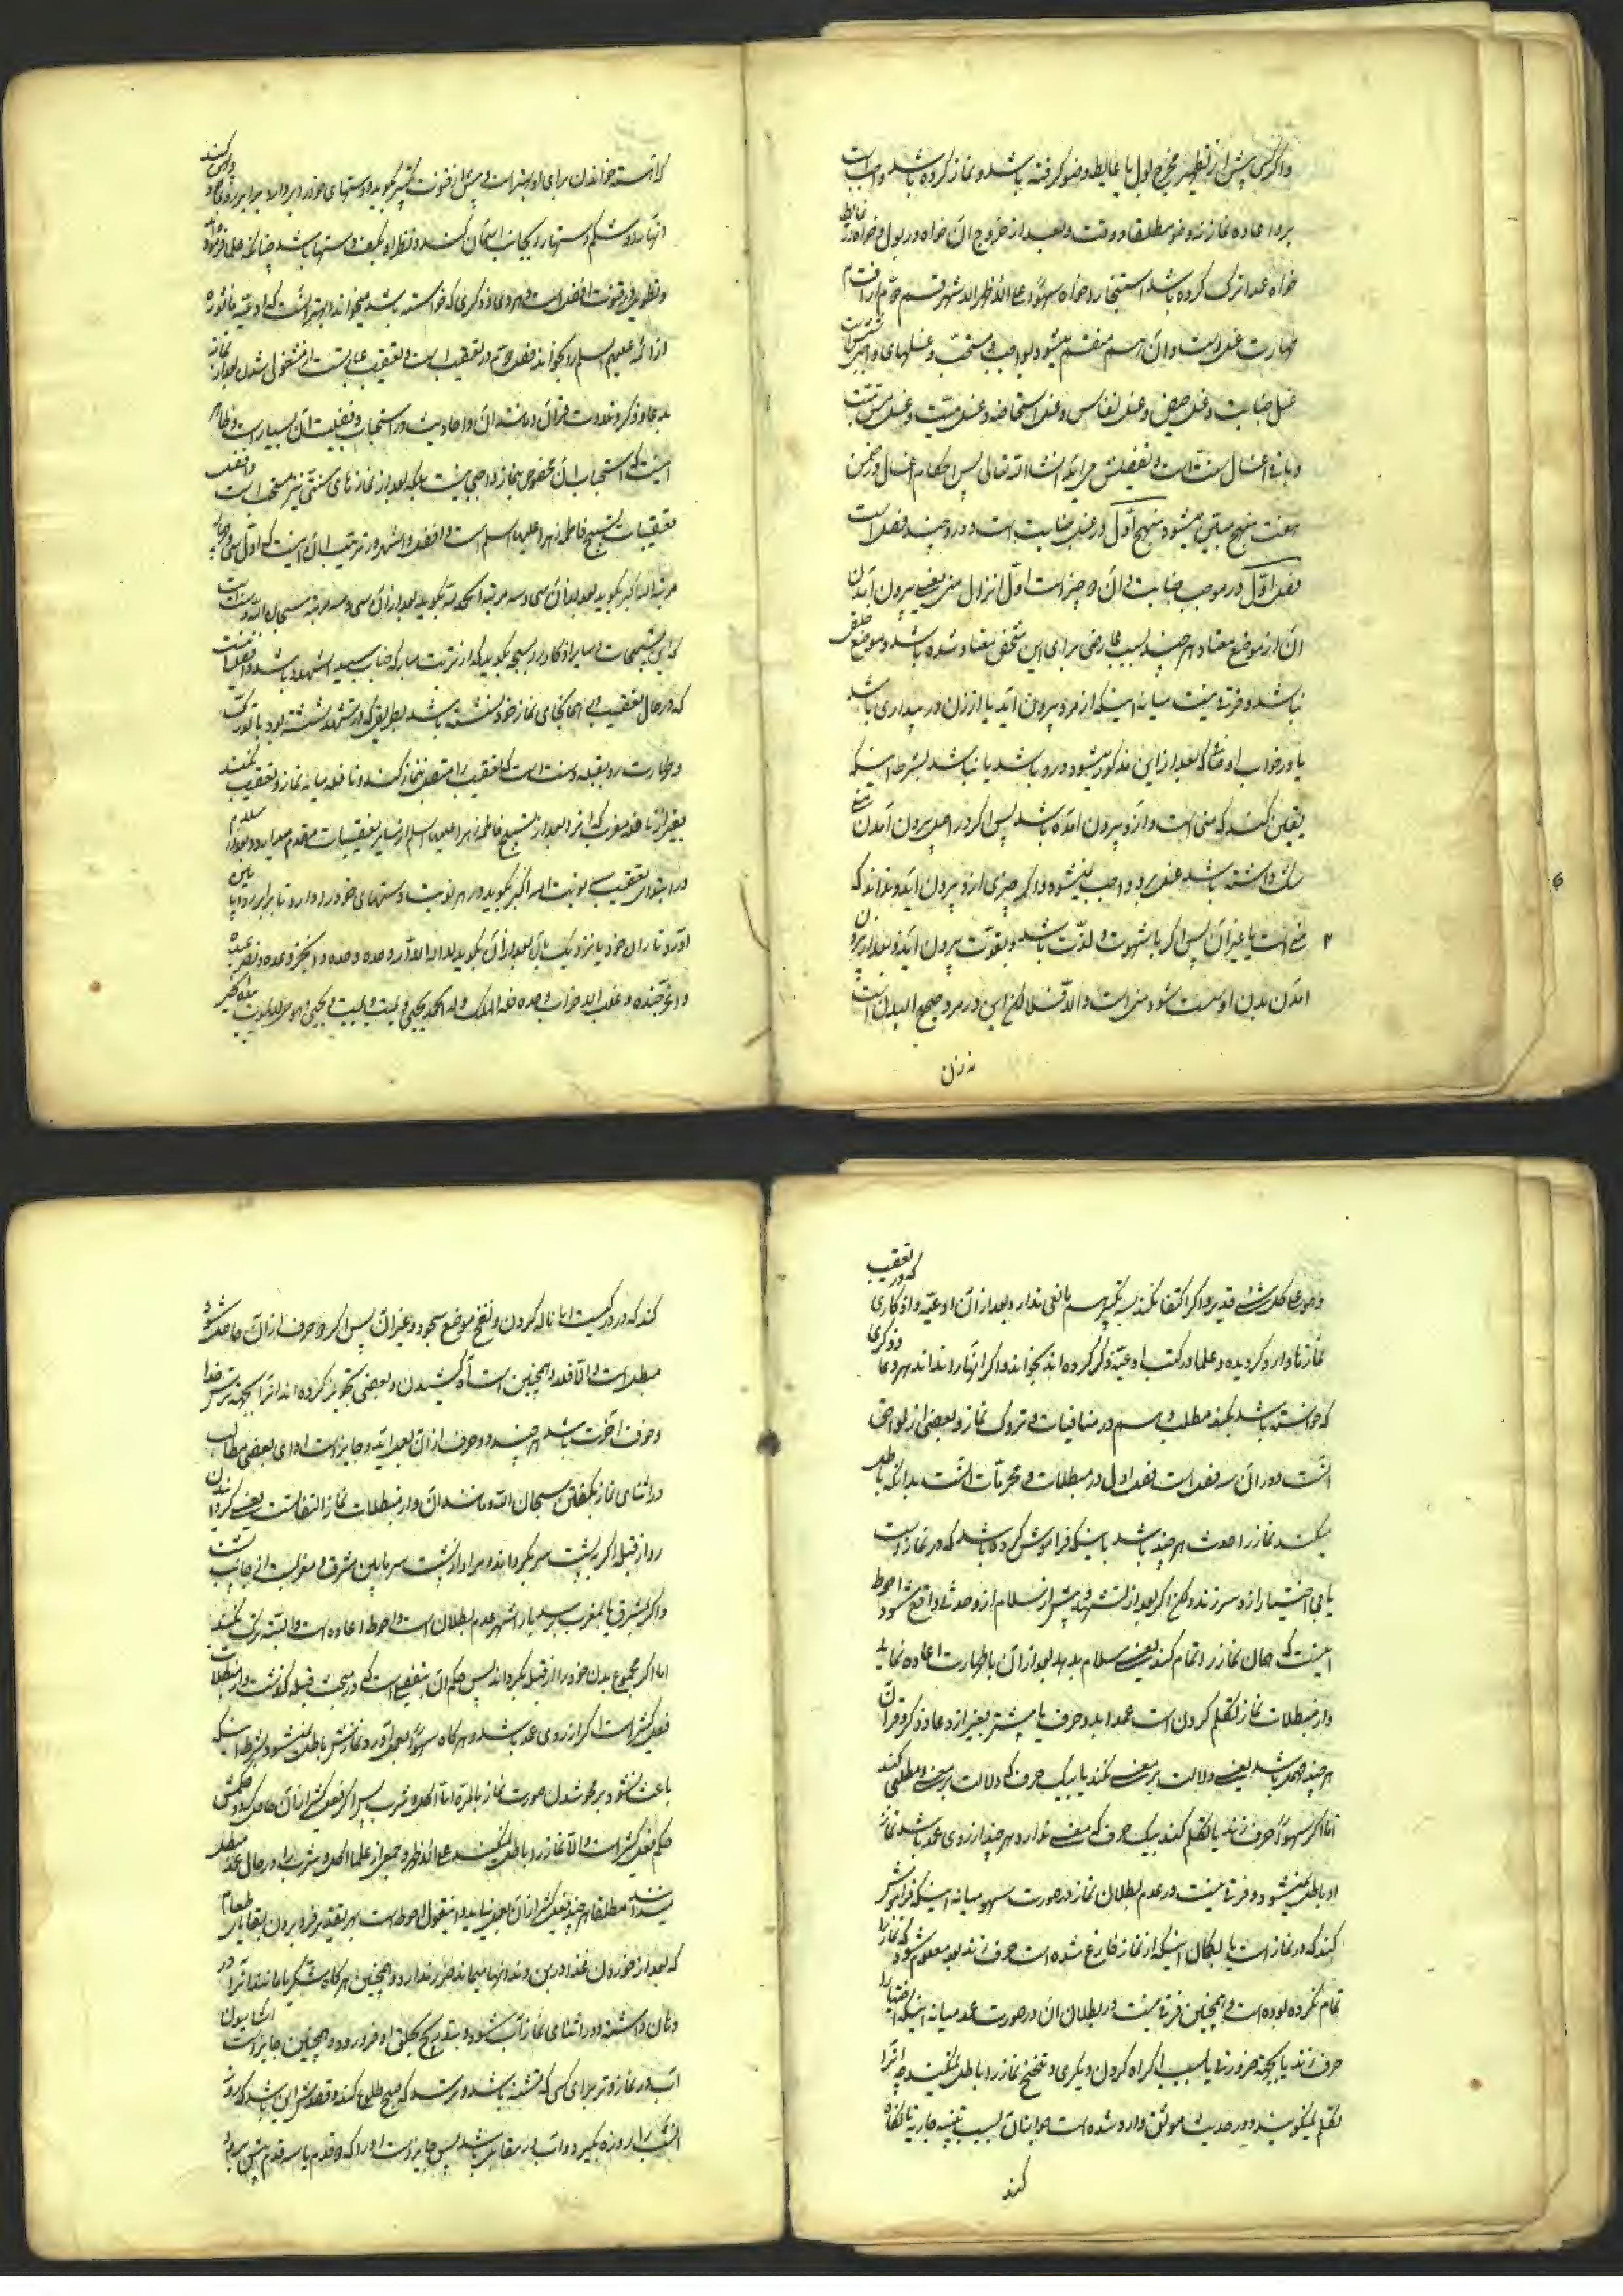 واکر کسی پیش از تطهیر مخرج بول یا غایط وضو کرفته باشد و نماز کرده باشد واجب است
بر او اعاده نماز نه وضو مطلقا در وقت و بعد از خروج آن خواه در بول و خواه در غایط
خواه عمدا ترک کرده باشد استنجا را و خواه سهوا علی الاظهر الاشهر قسم دوم از اقسام
طهارت غسل است و آن هم منقسم میشود بواجب و مستحب و غسلهای واجب شش است
غسل جنابت و غسل حیض و غسل نفاس و غسل استحاضه و غسل میت و غسل مس میت
و باقی اغسال سنت است و تفصیلش می آید انشاء الله تعالی پس احکام اغسال در ضمن
هفت منهج مبین میشود منهج اول در غسل جنابت است و در او چند فصل است
فصل اول در موجب جنابت و آن دو چیز است اول انزال منی یعنی بیرون آمدن
آن از موضع معتاد هر چند بسبب عارضی برای این شخص معتاد شده باشد و موضع خلقی
نباشد و فرقی نیست میانه اینکه از مرد بیرون آید یا از زن در بیداری باشد
یا در خواب اوصافی که بعد از این مذکور میشود در او باشد یا نباشد بشرط اینکه
یقین کند که منی است و از او بیرون آمده باشد پس اکر در اصل بیرون آمدن منی
شک داشته باشد غسل بر او واجب نمیشود و اکر چیزی از او بیرون آید و نداند که
منی است یا غیر آن پس اکر با شهوت و لذت باشد و بقوت بیرون آید و بعد از بیرون
آمدن بدن او سست شود منی است و الا فلا لکن این در مرد صحیح البدن است
نه زن
که آهسته خواندن برای او بهتر است و پیش از قنوت تکبیر بکوید و دستهای خود را بردارد برابر رو و
و نظر او بکف دستها باشد چنانکه علما فرموده
و تطویل در قنوت افضل است و هر دعا و ذکری که خواسته باشد میخواند و بهتر آنست که ادعیه ماثوره
از ائمه علیهم السلام را بخواند فصل دوم در تعقیب است و تعقیب عبارتست از مشغول شدن بعد از نماز
بدعا و ذکر و تلاوت قرآن و مانند آن و احادیث در استحباب و فضیلت آن بسیار است و ظاهر
اینست که استحباب آن مخصوص بنماز واجبی نیست بلکه بعد از نمازهای سنتی نیز مستحب است و افضل
تعقیبات تسبیح فاطمه زهرا علیها السلام است و افضل و اشهر در ترتیب آن اینست که اول سی و چهار
مرتبه الله اکبر بکوید بعد از آن سی و سه مرتبه الحمد لله بکوید بعد از آن سی و سه مرتبه سبحان الله و سنت است
که این تسبیحات و سایر اذکار را بسبحه بکوید که از تربت مبارکه جناب سید الشهدا باشد و افضل اینست
که در حال تعقیب در همانجای نماز خود نشسته باشد بطریقی که در تشهد نشسته بود با تورک
و طهارت رو بقبله و سنت است که تعقیب را متصل بنماز کند و نافله میانه نماز و تعقیب نکند
بغیر از نافله مغرب که آنرا بعد از تسبیح فاطمه زهرا علیها السلام از سایر تعقیبات مقدم میدارد و بعد از سلام
در ابتدای تعقیب سه نوبت الله اکبر بکوید و در هر نوبت دستهای خود را بردارد تا برابر رو و پائین
آورد تا ران خود یا نزدیک بآن بعد از آن بکوید لا اله الا الله وحده وحده وحده انجز وعده و نصر عبده
و اعز جنده و غلب الاحزاب وحده فله الملک و له الحمد یحیی و یمیت و یمیت و یحیی و هو حی لا یموت بیده الخیر
و هو علی کل شیء قدیر و اکر اکتفا نکند بسه تکبیر هم مانعی ندارد و بعد از آن ادعیه و اذکاری که در تعقیب
نمازها وارد کردیده و علما در کتب ادعیه ذکر کرده اند بخواند و اکر آنها را نداند هر دعا و ذکری
که خواسته باشد بکند مطلب سیم در منافیات و تروک نماز و بعضی از لواحق
آنست و در آن سه فصل است فصل اول در مبطلات و محرمات آنست بدانکه باطل
میکند نماز را حدث هر چند باشد باینکه فراموش کرده باشد که در نماز است
یا بی اختیار از او سر زند و لکن اکر بعد از تشهد و پیش از سلام از او حدث واقع شود احوط
اینست که همان نماز را تمام کند یعنی سلام بدهد بعد از آن با طهارت اعاده نماید
و از مبطلات نماز تکلم کردن است عمدا بدو حرف یا بیشتر بغیر از دعا و ذکر و قرآن
هر چند مهمل باشد یعنی دلالت بر معنی نکند یا بیک حرف که دلالت بر معنی و مطلبی کند
اما اکر سهوا حرف زند یا تکلم کند بیک حرف که معنی ندارد هر چند از روی عمد باشد نماز
او باطل نمیشود و فرقی نیست در عدم بطلان نماز در صورت سهو میانه اینکه فراموش
کند که در نماز است یا بکمان اینکه از نماز فارغ شده است حرف زند بعد معلوم شود که نماز را
تمام نکرده بوده است و همچنین فرقی نیست در بطلان آن در صورت عمد میانه اینکه اختیارا
حرف زند یا بجهة ضرورت یا بسبب اکراه کردن دیکری و تنحنح نماز را باطل نمیکند چه آنرا
تکلم نمیکویند و در حدیث موثق وارد شده است جواز آن بسبب تنبیه جاریه تا نکاه
کند
کند که در در کیست اما ناله کردن و نفخ موضع سجود و غیر آن پس اکر دو حرف از آن حاصل شود
مبطل است و الا فلا و همچنین است آه کشیدن و بعضی تجویز کرده اند آنرا بجهة ترس خدا
و خوف آخرت باشد هر چند دو حرف از آن بعمل آید و جایز است ادای بعضی مطالب
در اثنای نماز بکفتن سبحان الله و مانند آن و از مبطلات نماز التفاتست یعنی کردانیدن
رو از قبله اکر به پشت سر بکرداند و مراد از پشت سر مابین مشرق و مغربست از جانب پشت
و اکر بمشرق یا بمغرب برسد اشهر عدم بطلان است و احوط اعاده است و البته ترک نکند
اما اکر مجموع بدن خود را از قبله بکرداند پس حکم آن بتفصیلی است که در مبحث قبله کذشت و از مبطلات
فعل کثیر است اکر از روی عمد باشد و هر کاه سهوا بعمل آورد نمازش باطل نمیشود بشرط اینکه
باعث نشود بر محو شدن صورت نماز بالمره اما اکل و شرب پس اکر فعل کثیر از آن حاصل کردد حکمش
حکم فعل کثیر است و الا نماز را باطل نمیکند علی الاظهر و جمعی از علما اکل و شرب را در حال عمد مبطل
میدانند مطلقا هر چند فعل کثیر از آن بعمل نیاید و این قول احوط است بهر تقدیر فرو بردن بقایای طعام
که بعد از خوردن غذا در بن دندانها میماند ضرر ندارد و همچنین هر کاه شکر یا مانند آنرا در
دهان داشته و در اثنای نماز آب شود و بتدریج بحلق او فرو رود و همچنین جایز است آشامیدن
آب در نماز وتر برای کسی که تشنه باشد و ترسد که صبح طلوع کند و قصدش این باشد که روز
آنشب را روزه بکیرد و آب در مقابل باشد پس جایز است او را که دو قدم یا سه قدم پیش برود